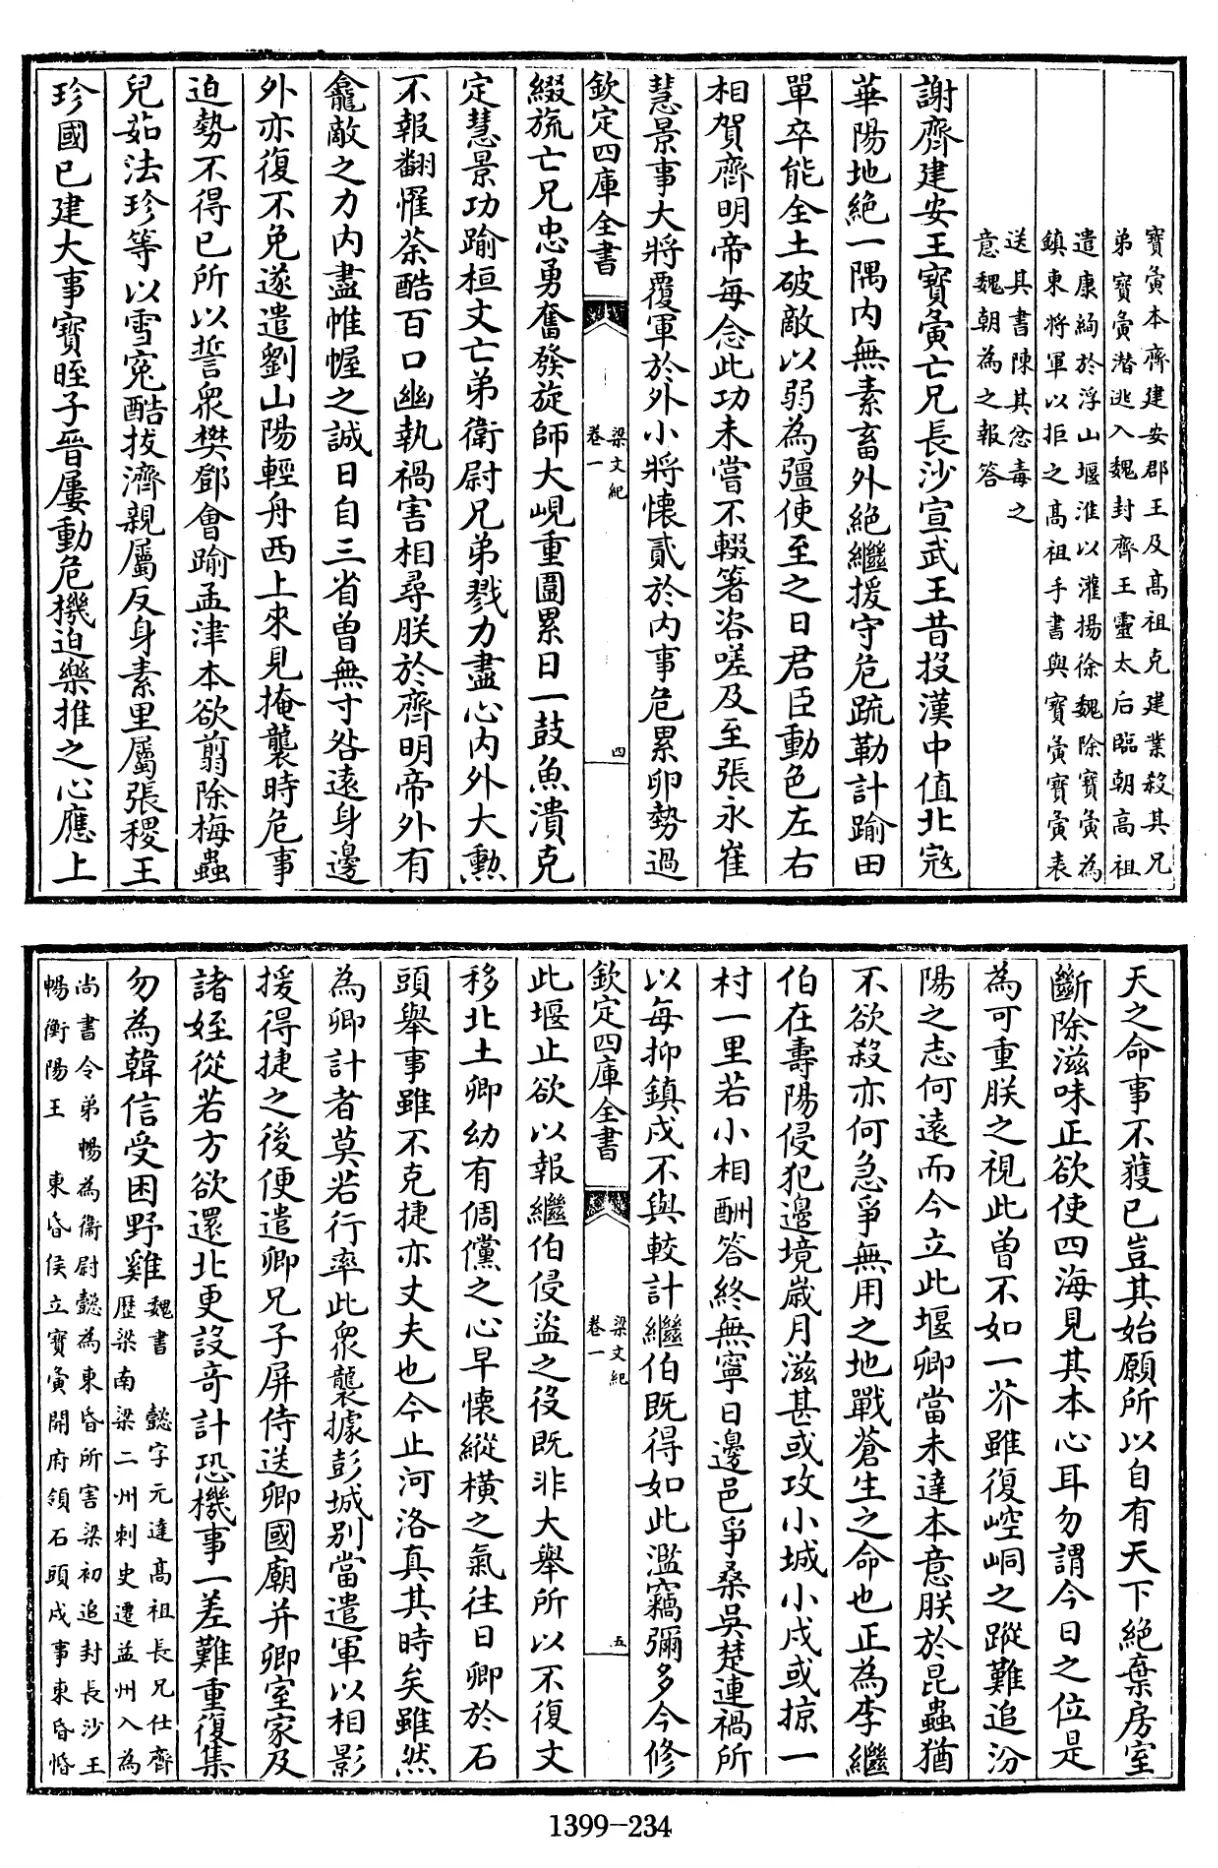 寶夤本齊建安郡王及髙祖克建業殺其兄
弟寶夤潜逃入魏封齊王靈太后臨朝高祖
遣康絢於浮山堰淮以灌揚徐魏除寶夤為
鎮東將軍以拒之髙祖手書與寶夤寶夤表
送其書陳其忿毒之
意魏朝為之報答
謝齊建安王寶夤亡兄長沙宣武王昔投漢中值北宼
華陽地絶一隅内無素畜外絶繼援守危疏勒計踰田
單卒能全土破敵以弱為彊使至之日君臣動色左右
相賀齊明帝每念此功未嘗不輟箸咨嗟及至張永崔
慧景事大將覆軍於外小將懷貳於内事危累卵勢過
欽定四庫全書
梁文紀
卷一
四
綴旒亡兄忠勇奮發旋師大峴重圍累日一鼓魚潰克
定慧景功踰桓文亡弟衛尉兄弟戮力盡心内外大勲
不報翻罹荼酷百口幽執禍害相尋朕於齊明帝外有
龕敵之力内盡帷幄之誠日自三省曽無寸咎遠身邊
外亦復不免遂遣劉山陽輕舟西上來見掩襲時危事
迫勢不得已所以誓衆樊鄧會踰孟津本欲翦除梅蟲
兒茹法珍等以雪寃酷拔濟親屬反身素里屬張稷王
珍國已建大事寶晊子晉屢動危機迫樂推之心應上
天之命事不獲已豈其始願所以自有天下絶棄房室
斷除滋味正欲使四海見其本心耳勿謂今日之位是
為可重朕之視此曽不如一芥雖復崆峒之蹤難追汾
陽之志何逺而今立此堰卿當未達本意朕於昆蟲猶
不欲殺亦何急爭無用之地戰蒼生之命也正為李繼
伯在壽陽侵犯邊境歲月滋甚或攻小城小戍或掠一
村一里若小相酬答終無寧日邊邑爭桑吳楚連禍所
以每抑鎮戍不與較計繼伯既得如此濫竊彌多今修
欽定四庫全書
梁文紀
卷一
五
此堰止欲以報繼伯侵盜之役既非大舉所以不復文
移北土卿幼有倜儻之心早懷縱横之氣往日卿於石
頭舉事雖不克捷亦丈夫也今止河洛真其時矣雖然
為卿計者莫若行率此衆襲據彭城別當遣軍以相影
援得捷之後便遣卿兄子屏侍送卿國廟并卿室家及
諸姪從若方欲還北更設奇計恐機事一差難重復集
勿為韓信受困野雞
魏書　懿字元達髙祖長兄仕齊
歷梁南梁二州刺史遷益州入為
尚書令弟暢為衛尉懿為東昏所害梁初追封長沙王
暢衡陽王　東昏侯立寶夤開府領石頭戍事東昏惛
1399-234